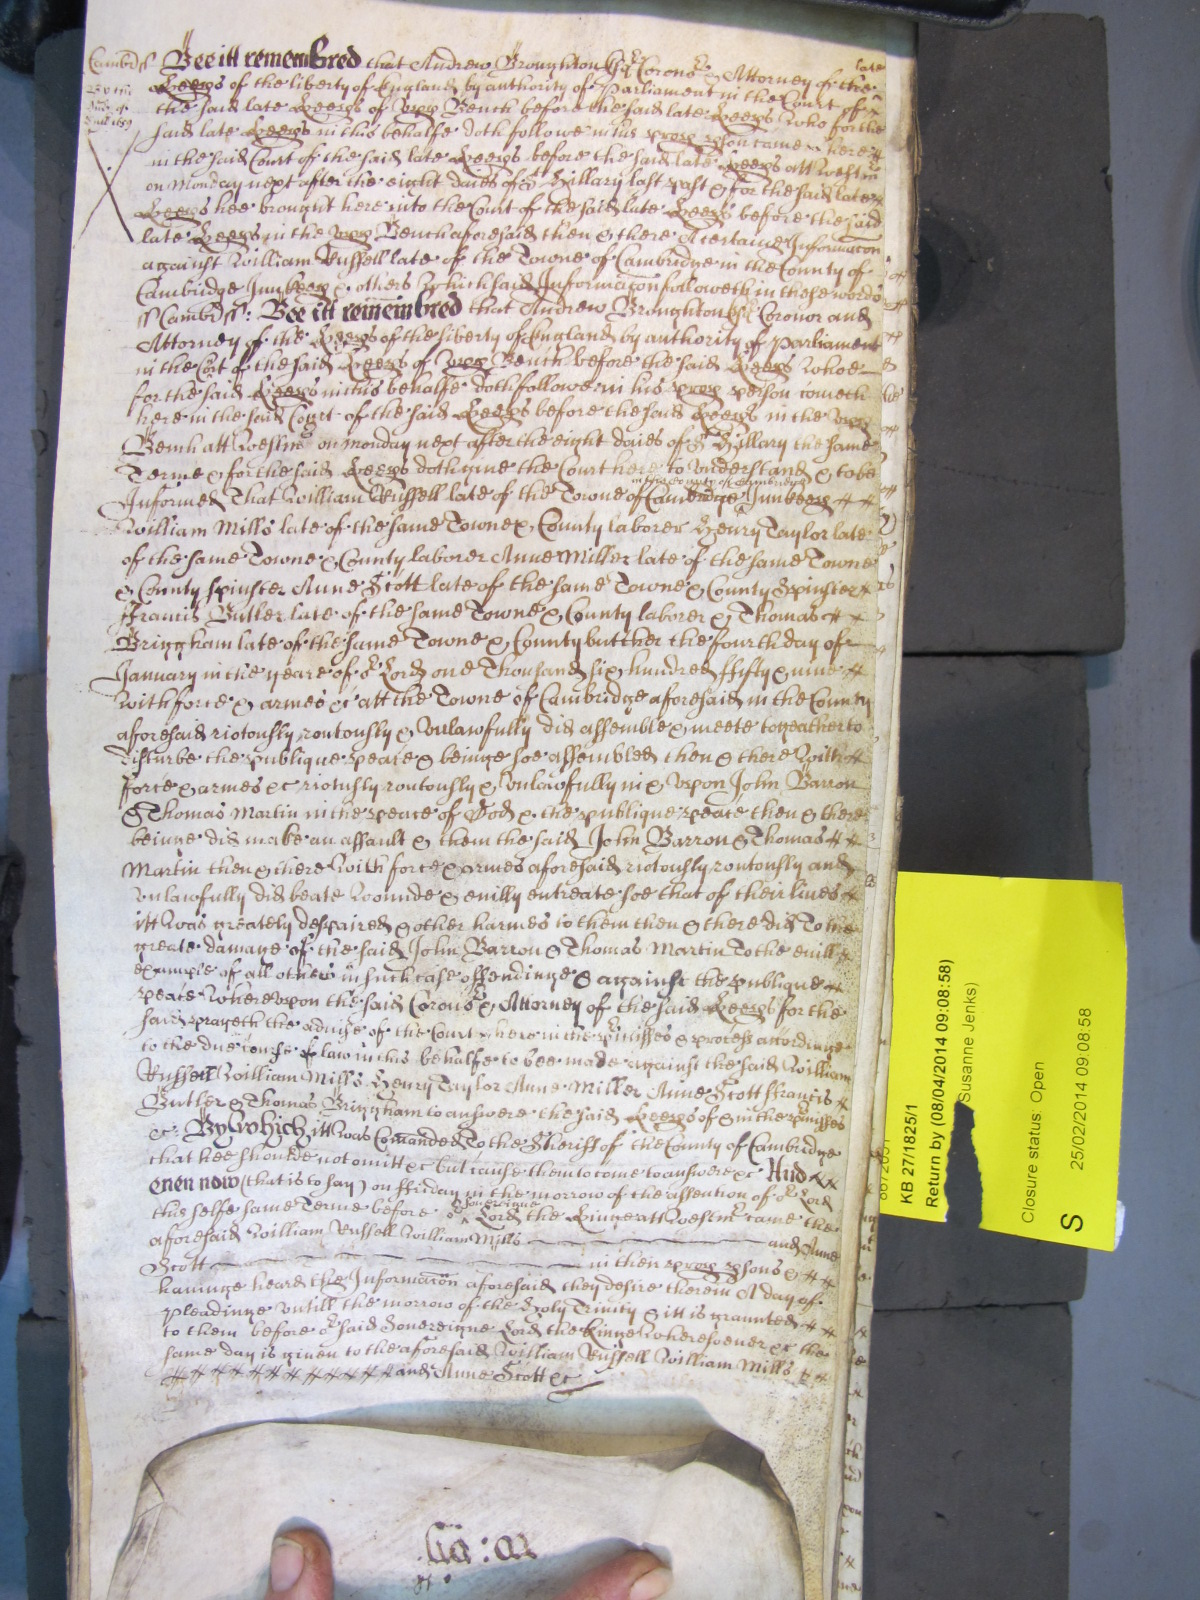 Cambr ss Bee itt remembred that Andrew Broughton Esqr Coronor & Attorney of the late
Keeps of the liberty of England by authority of Parliament in the Court of
the said late Keeps of upp Bench before the said late Keeps who for the
said late Keeps in this behalfe doth followe in his prop pson came here
in the said Court of the said late Keeps before the said late Keeps att Westm
on Monday next after the eight daies of St Hillary last past & for the said late
Keeps hee brought here into the Court of the said late Keeps before the said
late Keeps in the upp Bench aforesaid then & there A certaine Informacon
against William Russell late of the Towne of Cambridge in the County of
Cambridge Innkeep & others which said Informacon followeth in these words
ss Cambr ss: Bee itt remembred that Andrew Broughton Esqr Coronor and
Attorney of the Keeps of the liberty of England by authority of Parliament
in the Cort of the said Keeps of upp Bench before the said Keeps whoe
for the said Keeps in this behalfe doth followe in his prop person cometh
here in the said Court of the said Keeps before the said Keeps in the upp
Bench att Westmr on Monday next after the eight daies of St Hillary the same
Terme & for the said Keeps doth give the Court here to understand & to be
in the County of Cambridge
Informed That William Russell late of the Towne of Cambridge Innkeep
William Mills late of the same Towne & County laborer Henry Taylor late
of the same Towne & County laborer Anne Miller late of the same Towne
& County spinster Anne Scott late of the same Towne & County Spinster
Francis Butler late of the same Towne & County laborer & Thomas
Bringham late of the same Towne & County butcher the fourth day of
January in the yeare of or Lord one Thousand six hundred ffifty & nine
with force & armes &c att the Towne of Cambridge aforesaid in the County
aforesaid riotously routously & unlawfully did assemble & meete togeather to
disturbe the publique peace & beinge soe assembled then & there with
force & armes &c riotusly routously & unlawfully in & upon John Barron
& Thomas Martin in the peace of God & the publique peace then & there
beinge did make an assault & them the said John Barron & Thomas
Martin then & there with force & armes aforesaid riotously routously and
unlawfully did beate wounde & evilly entreate soe that of their lives
itt was greately despaired & other harmes to them then & there did To the
greate damage of the said John Barron & Thomas Martin To the evill
example of all others in such case offendinge & against the publique
peace whereupon the said Coronor & Attorney of the said Keeps for the
said prayeth the advise of the Court here in the pmisses & process accordinge
to the due course of law in this behalfe to bee made against the said William
Russell William Mills Henry Taylor Anne Miller Anne Scott Francis
Butler & Thomas Bringham to answere the said Keeps of & in the pmisses
&c: By which itt was Comanded To the Sheriff of the County of Cambridge
that hee should not omitt &c but cause them to come to answere &c And
even now (that is to say) on ffriday in the morrow of the assention of or Lord
this selfe same Terme before or Sovereigne Lord the Kinge att Westmr came the
aforesaid William Russell William Mills and Anne
Scott in their prop psons &
haveinge heard the Informacon aforesaid they desire therein A day of
pleadinge untill the morrow of the Holy Trinity & itt is graunted
to them before or said Sovereigne Lord the Kinge wheresoever &c the
same day is given to the aforesaid William Russell William Mills
and Anne Scott &c
KB 27/1825/1
Return by (08/04/2014 09:08:58)
Susanne Jenks)
Closure status: Open
S
25/02/2014 09:08:58